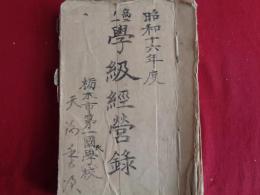 昭和十六年度
學級經營錄
栃木市第一國民學校